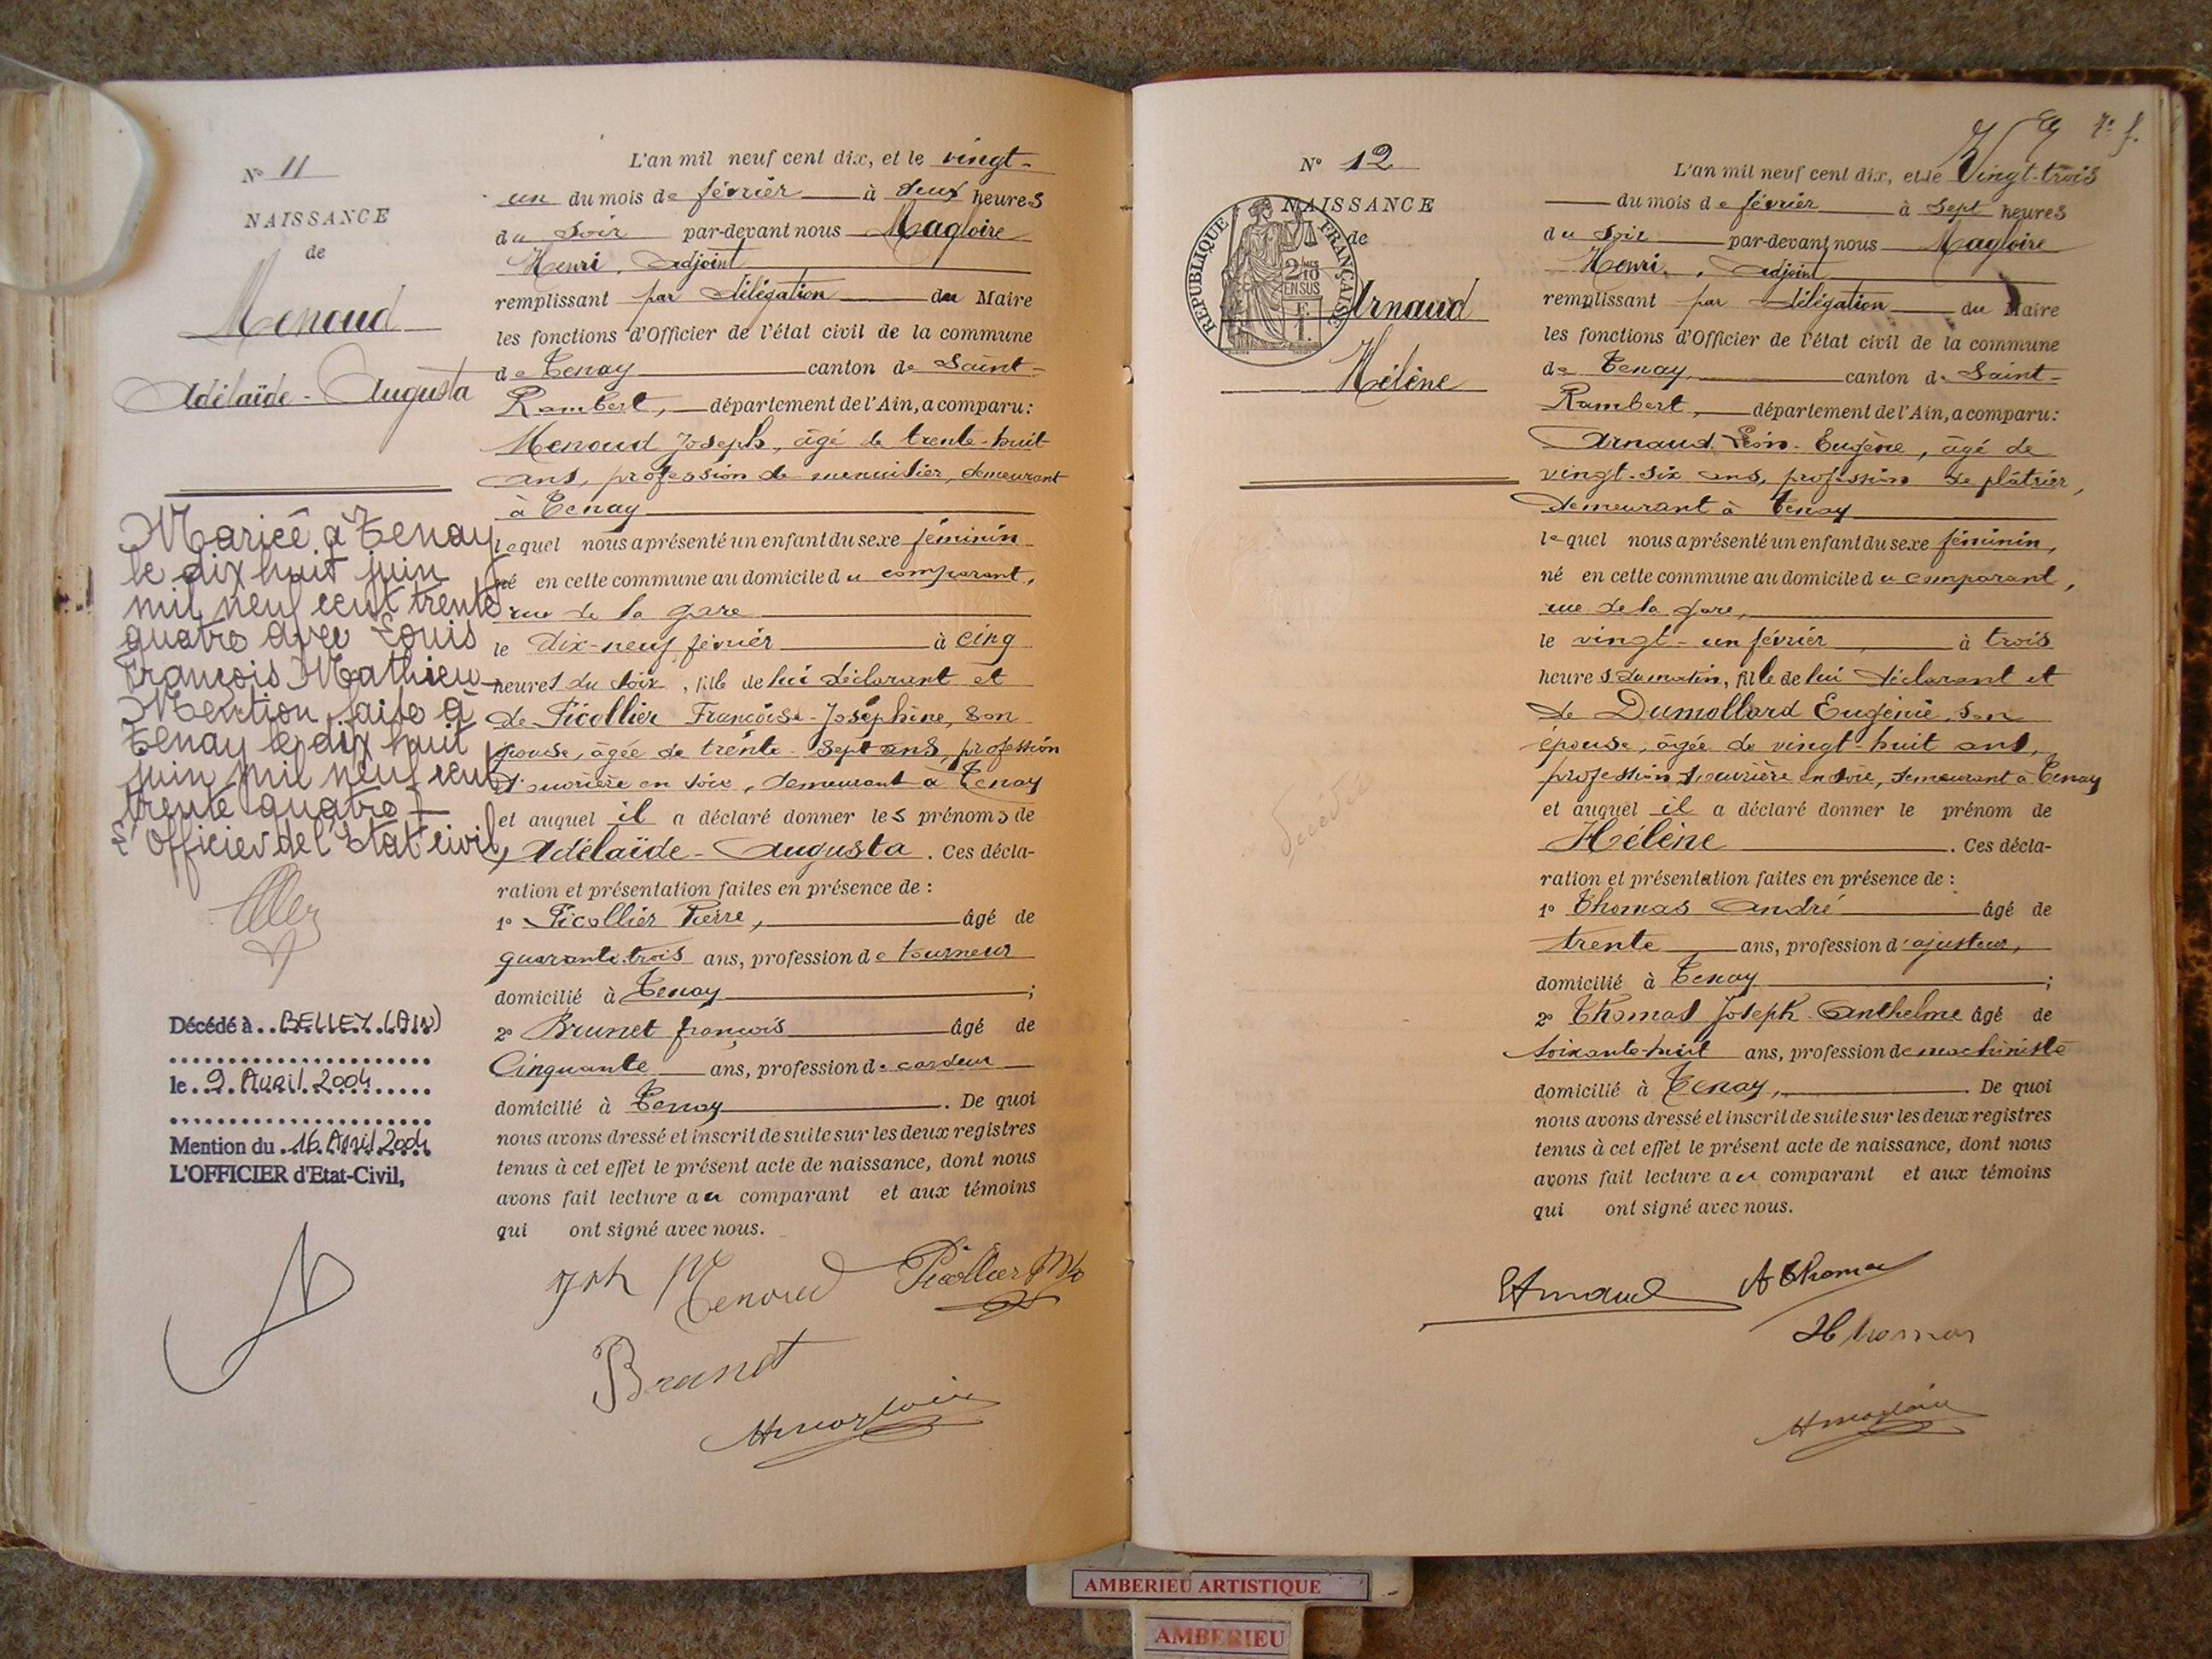 N° 11
NAISSANCE
de
Menoud
Adélaïde-Augusta
Mariée à Tenay
le dix huit juin
mil neuf cent trente
quatre avec Louis
François Mathieu
Mention faite à
Tenay le dix huit
juin mil neuf cent
trente quatre
L'Officier de l'Etat civil,
Décédé à BELLEY (AIN)
le 9 Avril 2004
Mention du 16 Avril 2004
L'OFFICIER d'Etat-Civil,
L'an mil neuf cent dix, et le vingt-
un du mois de février à deux heures
du soir par-devant nous Magloire
Henri, adjoint
remplissant par délégation du Maire
les fonctions d'Officier de l'état civil de la commune
de Tenay canton de Saint-
Rambert, département de l'Ain, a comparu:
Menoud Joseph, âgé de trente-huit
ans, profession de menuisier, demeurant
à Tenay
lequel nous a présenté un enfant du sexe féminin
né en cette commune au domicile du comparant,
rue de la gare
le dix-neuf février à cinq
heures du soir, fille de lui déclarant et
de Picollier Françoise-Joséphine, son
épouse, âgée de trente-sept ans, profession
d'ouvrière en soie, demeurant à Tenay
et auquel il a déclaré donner les prénoms de
Adélaïde-Augusta. Ces décla-
ration et présentation faites en présence de :
1° Picollier Pierre, âgé de
quarante-trois ans, profession de tourneur
domicilié à Tenay ;
2° Brunet françois âgé de
Cinquante ans, profession de cardeur
domicilié à Tenay. De quoi
nous avons dressé et inscrit de suite sur les deux registres
tenus à cet effet le présent acte de naissance, dont nous
avons fait lecture au comparant et aux témoins
qui ont signé avec nous.
Jph Menoud Picollier
Brunet
Hmagloire
7e f.
N° 12
NAISSANCE
de
RÉPUBLIQUE FRANÇAISE
Arnaud
Hélène
Décédée
L'an mil neuf cent dix, et le Vingt-trois
du mois de février à sept heures
du soir par-devant nous Magloire
Henri, adjoint
remplissant par délégation du Maire
les fonctions d'Officier de l'état civil de la commune
de Tenay, canton de Saint-
Rambert, département de l'Ain, a comparu:
Arnaud Léon-Eugène, âgé de
vingt-six ans, profession de plâtrier,
demeurant à Tenay
lequel nous a présenté un enfant du sexe féminin,
né en cette commune au domicile du comparant,
rue de la gare,
le vingt-un février à trois
heures du matin, fille de lui déclarant et
de Dumollard Eugénie, son
épouse, âgée de vingt-huit ans,
profession d'ouvrière en soie, demeurant à Tenay
et auquel il a déclaré donner le prénom de
Hélène. Ces décla-
ration et présentation faites en présence de :
1° Thomas André âgé de
trente ans, profession d'ajusteur,
domicilié à Tenay ;
2° Thomas Joseph-Anthelme âgé de
soixante-huit ans, profession de machiniste
domicilié à Tenay, De quoi
nous avons dressé et inscrit de suite sur les deux registres
tenus à cet effet le présent acte de naissance, dont nous
avons fait lecture au comparant et aux témoins
qui ont signé avec nous.
Arnaud A Thomas
Thomas
Hmagloire
AMBERIEU ARTISTIQUE
AMBERIEU